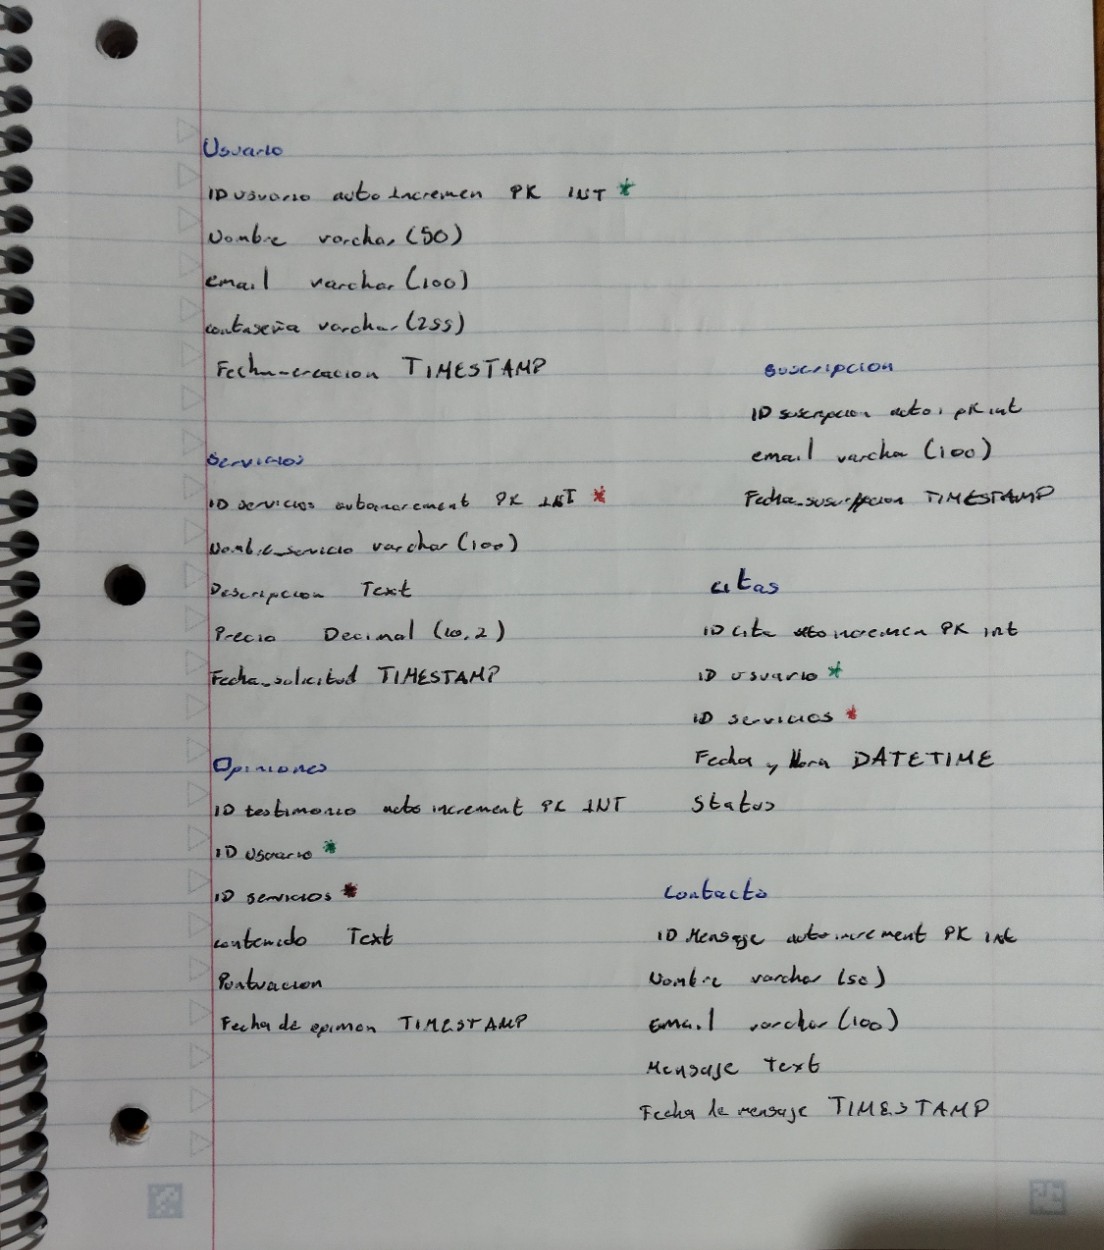 Usuario
ID usuario auto incremen PK INT *
Nombre varchar (50)
email varchar (100)
contaseña varchar (255)
Fecha-creacion TIMESTAMP
Servicios
ID servicios autoincrement PK INT *
Nombre_servicio varchar (100)
Descripcion Text
Precio Decimal (10,2)
Fecha_solicitud TIMESTAMP
Opiniones
ID testimonio auto increment PK INT
ID usuario *
ID servicios *
contenido Text
Puntuacion
Fecha de opinion TIMESTAMP
Suscripcion
ID suscripcion auto i pk int
email varchar (100)
Fecha_suscripcion TIMESTAMP
citas
ID cita auto incremen PK int
ID usuario *
ID servicios *
Fecha y Hora DATETIME
Status
Contacto
ID Mensaje auto increment PK int
Nombre varchar (50)
Email varchar (100)
Mensaje Text
Fecha de mensaje TIMESTAMP